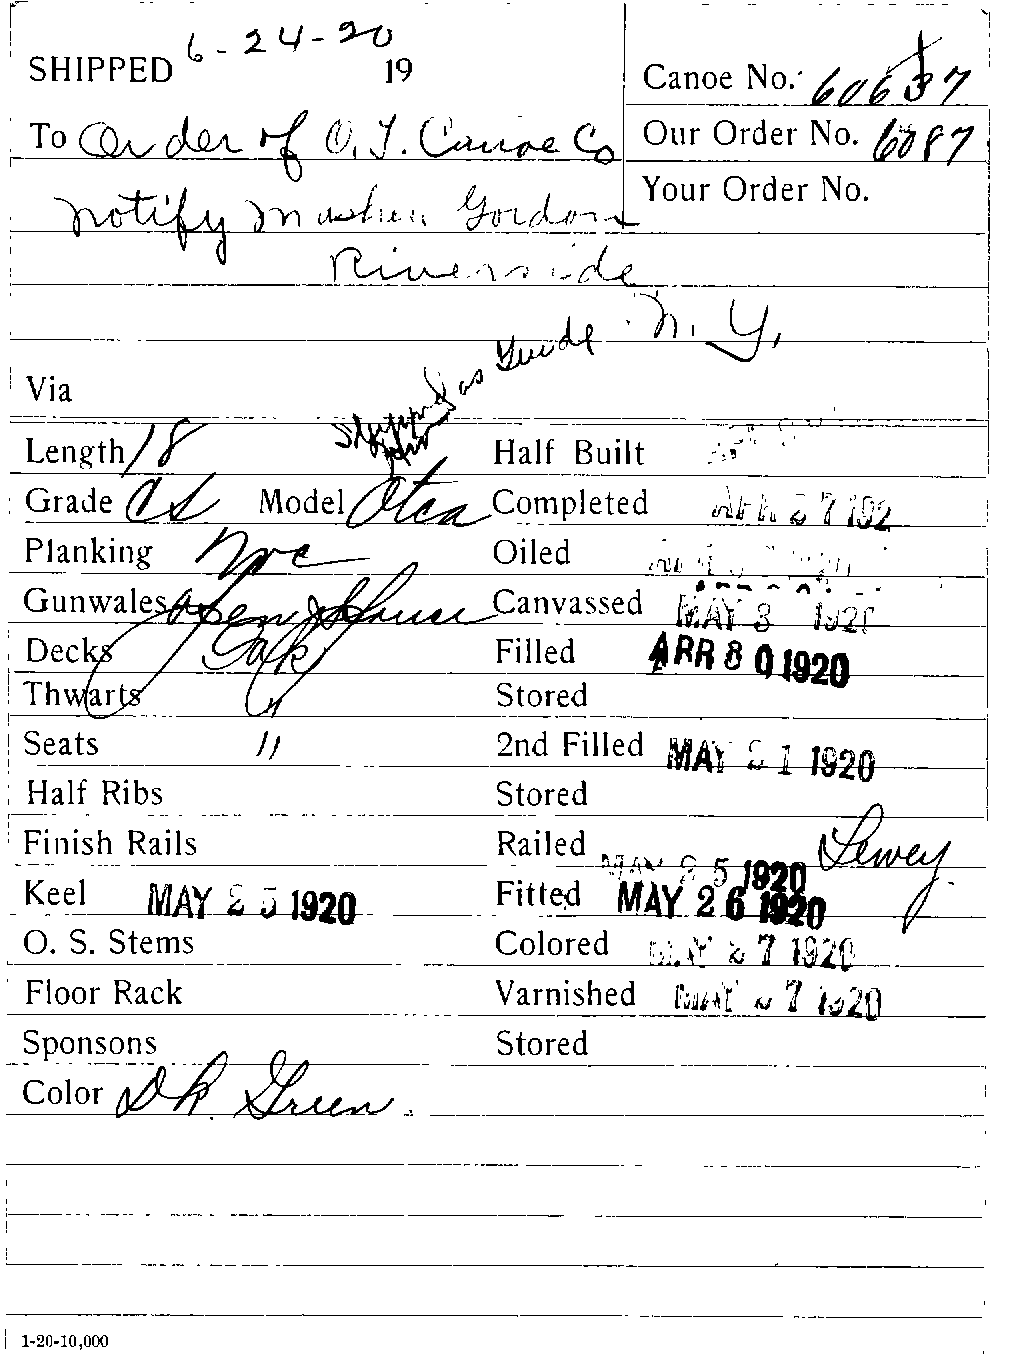 SHIPPED 6-24-20 19
Canoe No. 60637
To Order of O. T. Canoe Co
Our Order No. 6087
Your Order No.
notify Gordon
Riverside
N. Y.
Shipped as Guide
Via
Length 18
Half Built
Grade CS Model Otca
Completed 27 192
Planking
Oiled
Gunwales Open Spruce
Canvassed MAY 3 1920
Decks Oak
Filled APR 30 1920
Thwarts "
Stored
Seats "
2nd Filled MAY 21 1920
Half Ribs
Stored
Finish Rails
Railed MAY 25 1920 Dewey
Keel MAY 25 1920
Fitted MAY 26 1920
O. S. Stems
Colored MAY 27 1920
Floor Rack
Varnished MAY 27 1920
Sponsons
Stored
Color Dk Green.
1-20-10,000